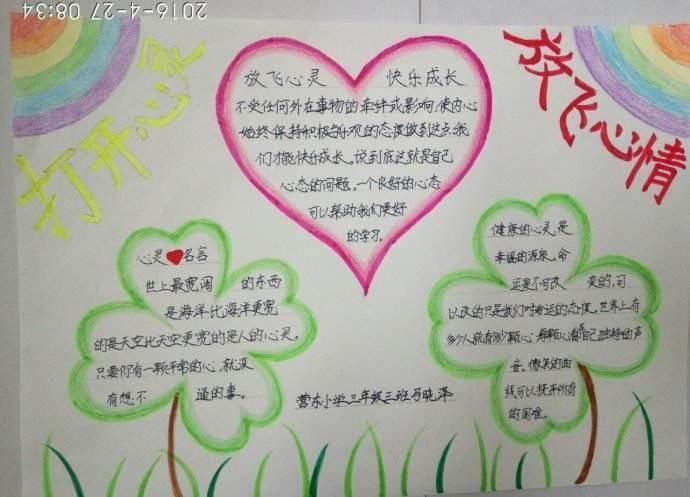 2016-4-27 08:34
打开心灵
放飞心情
放飞心灵 快乐成长
不受任何外在事物的牵绊或影响,使内心
始终保持积极与乐观的态度做到这点,我
们才能快乐成长。说到底这就是自己
心态的问题。一个良好的心态
可以帮助我们更好
的学习。
心灵 名言
世上最宽阔 的东西
是海洋比海洋更宽
的是天空比天空更宽的是人的心灵。
只要你有一颗平常的心,就没
有想不 通的事。
健康的心灵,是
幸福的源泉。命
运是不可改 变的,可
以改的只是我们对命运的态度。世界上有
多少人就有多少颗心,每颗心有自己独特的声
音。微笑的曲
线可以抚平所有
的困难。
营东小学三年级三班马晓泽